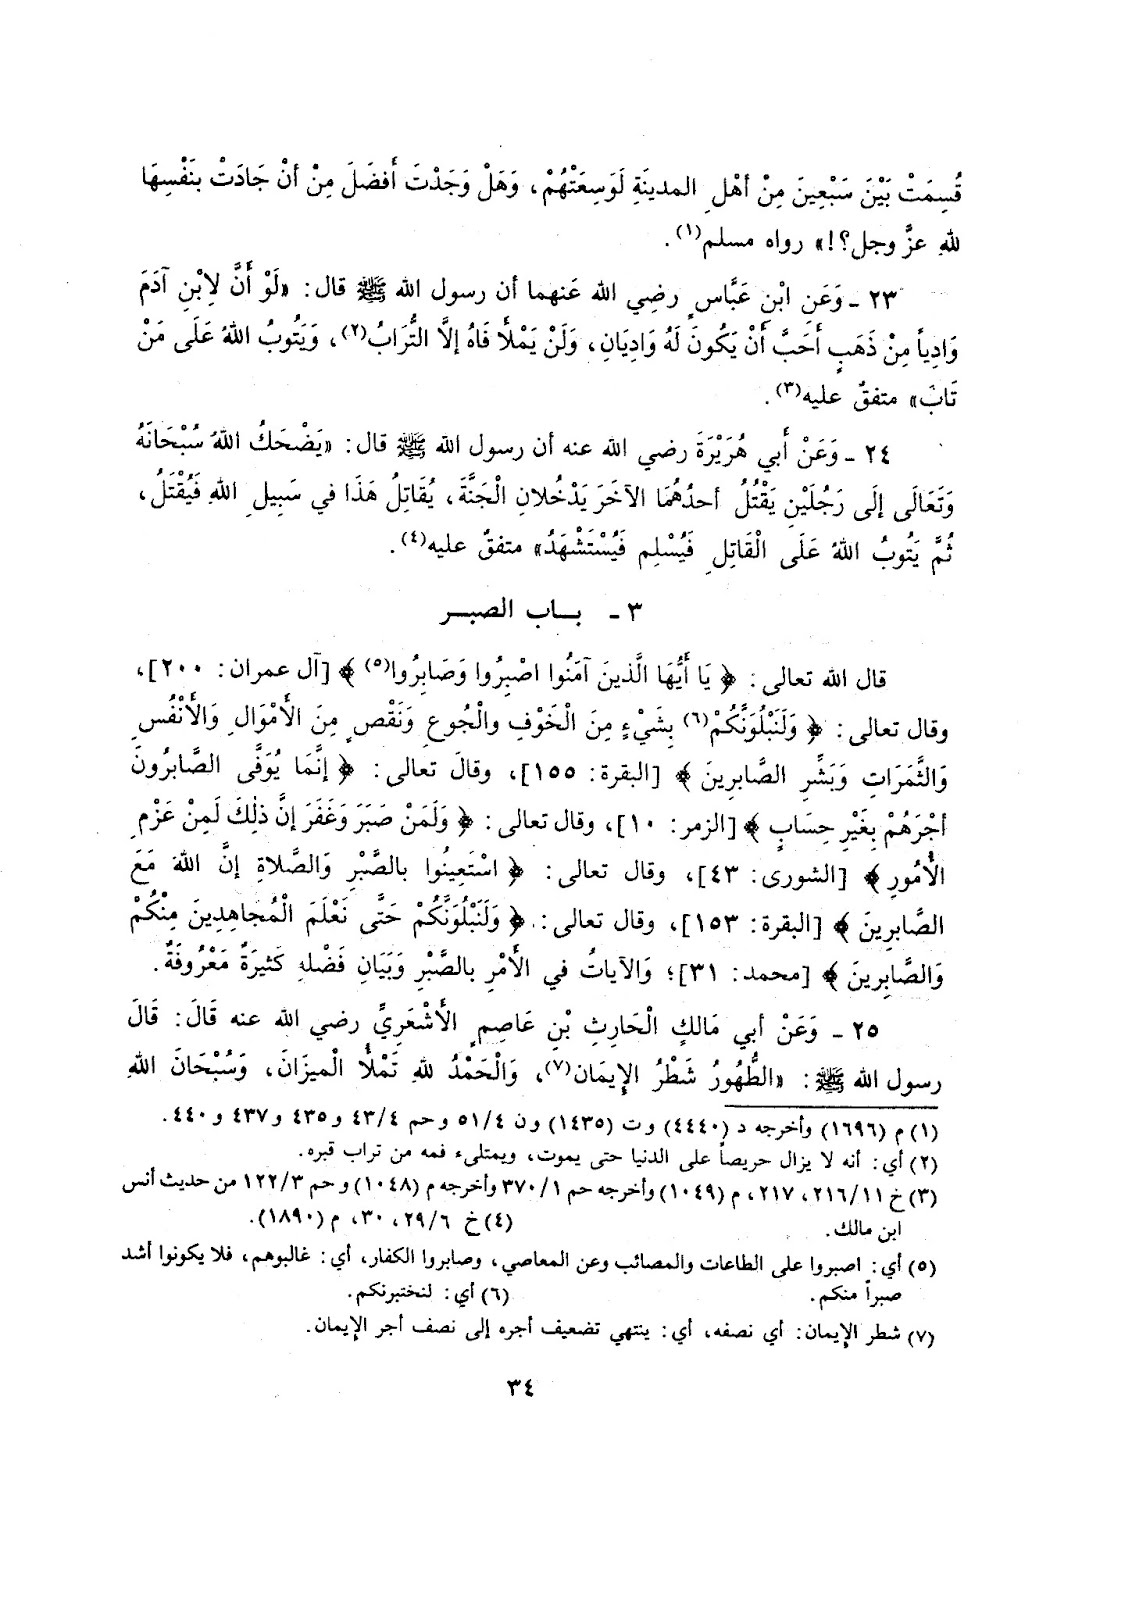 قُسِمَتْ بَيْنَ سَبْعِينَ مِنْ أَهْلِ المدينَةِ لَوَسِعَتْهُمْ، وَهَلْ وَجَدْتَ أَفضَلَ مِنْ أنْ جَادَتْ بنَفْسِهَا
للهِ عزَّ وجل؟!» رواه مسلم(١).
٢٣ ـ وَعَنِ ابْنِ عَبَّاسٍ رضِي الله عَنهما أن رسول الله ﷺ قال: «لَوْ أَنَّ لابْنِ آدَمَ
وَادِياً مِنْ ذَهَبٍ أَحَبَّ أَنْ يَكُونَ لَهُ وَادِيَانِ، وَلَنْ يَمْلَأَ فَاهُ إلَّا التُّرَابُ(٢)، وَيَتُوبُ اللهُ عَلَى مَنْ
تَابَ» متفقٌ عليه(٣).
٢٤ ـ وَعَنْ أَبي هُرَيْرَةَ رضي الله عنه أن رسول الله ﷺ قال: «يَضْحَكُ اللهُ سُبْحَانَهُ
وَتَعَالَى إلَى رَجُلَيْنِ يَقْتُلُ أحدُهُمَا الآخَرَ يَدْخُلانِ الْجَنَّةَ، يُقَاتِلُ هَذَا في سَبِيلِ اللهِ فَيُقْتَلُ،
ثُمَّ يَتُوبُ اللهُ عَلَى الْقَاتِلِ فَيُسْلِم فَيُسْتَشْهَدُ» متفقٌ عليه(٤).
٣ ـ بــاب الصبــر
قال الله تعالى: ﴿ يَا أَيُّهَا الَّذينَ آمَنُوا اصْبِرُوا وَصَابِرُوا(٥) ﴾ [آل عمران: ٢٠٠]،
وقال تعالى: ﴿ وَلَنَبْلُوَنَّكُمْ(٦) بِشَيْءٍ مِنَ الْخَوْفِ والْجُوعِ وَنَقْصٍ مِنَ الأَمْوَالِ وَالأَنْفُسِ
وَالثَّمَرَاتِ وَبَشِّرِ الصَّابِرِينَ ﴾ [البقرة: ١٥٥]، وقالَ تعالى: ﴿ إنَّمَا يُوَفَّى الصَّابرُونَ
أجْرَهُمْ بِغَيْرِ حِسَابٍ ﴾ [الزمر: ١٠]، وقال تعالى: ﴿ وَلَمَنْ صَبَرَ وَغَفَرَ إنَّ ذٰلِكَ لَمِنْ عَزْمِ
الأُمُورِ ﴾ [الشورى: ٤٣]، وقال تعالى: ﴿ اسْتَعِينُوا بالصَّبْرِ وَالصَّلاةِ إنَّ اللهَ مَعَ
الصَّابِرِينَ ﴾ [البقرة: ١٥٣]، وقال تعالى: ﴿ وَلَنَبْلُوَنَّكُمْ حَتَّى نَعْلَمَ الْمُجَاهِدِينَ مِنْكُمْ
وَالصَّابِرِينَ ﴾ [محمد: ٣١]؛ وَالآياتُ في الأَمْرِ بالصَّبْرِ وَبَيَانِ فَضْلهِ كَثيرَةٌ مَعْرُوفَةٌ.
٢٥ ـ وَعَنْ أبي مَالكٍ الْحَارِثِ بْنِ عَاصِمٍ الأَشْعَرِيِّ رضي الله عنه قَالَ: قَالَ
رسول الله ﷺ: «الطُّهُورُ شَطْرُ الإِيمَان(٧)، وَالْحَمْدُ للهِ تَمْلأُ الْميزَانَ، وَسُبْحَانَ اللهِ
(١) م (١٦٩٦) وأخرجه د (٤٤٤٠) و ت (١٤٣٥) و ن ٥١/٤ و حم ٤٣/٤ و ٤٣٥ و ٤٣٧ و ٤٤٠.
(٢) أي: أنه لا يزال حريصاً على الدنيا حتى يموت، ويمتلىء فمه من تراب قبره.
(٣) خ ٢١٦/١١، ٢١٧، م (١٠٤٩) وأخرجه حم ٣٧٠/١ وأخرجه م (١٠٤٨) و حم ١٢٢/٣ من حديث أنس
ابن مالك. (٤) خ ٢٩/٦، ٣٠، م (١٨٩٠).
(٥) أي: اصبروا على الطاعات والمصائب وعن المعاصي، وصابروا الكفار، أي: غالبوهم، فلا يكونوا أشد
صبراً منكم. (٦) أي: لنختبرنكم.
(٧) شطر الإيمان: أي نصفه، أي: ينتهي تضعيف أجره إلى نصف أجر الإيمان.
٣٤